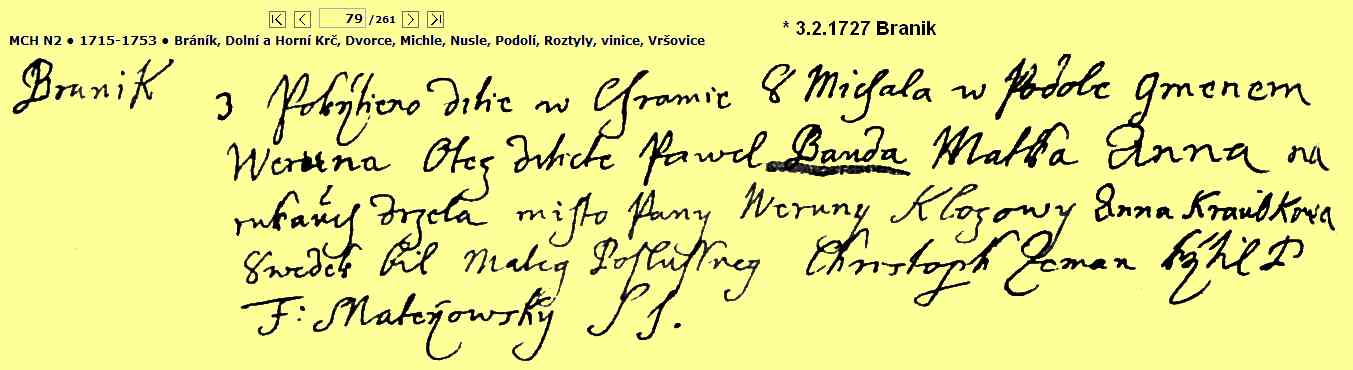 79 /261
* 3.2.1727 Branik
MCH N2 • 1715-1753 • Bráník, Dolní a Horní Krč, Dvorce, Michle, Nusle, Podolí, Roztyly, vinice, Vršovice
Branik
3 Pokrztieno ditie w Chramie S Michala w Podole Gmenem
Weruna Otez ditiete Pawel Banda Matka Anna na
rukauch drzela misto Pany Weruny Klozowy Anna
Swedek bil Mateg Christoph Zeman krztil P
F: S J.